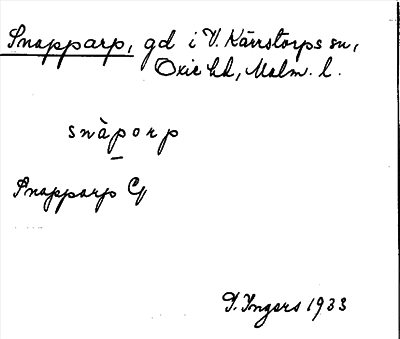 Snapparp, gd i V. Kärrstorps sn,
Oxie hd, Malm. l.
snàporp
Snapparp
I. Ingers 1933